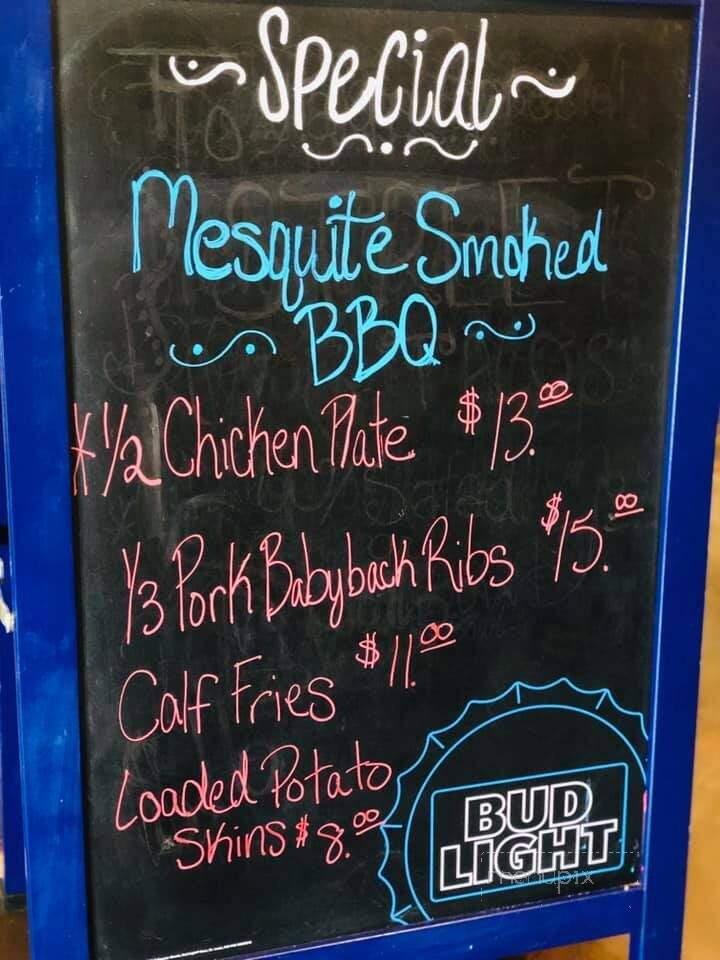 Special
Mesquite Smoked
BBQ
1/2 Chicken Plate $13.00
1/3 Pork Babyback Ribs $15.00
Calf Fries $11.00
Loaded Potato
Skins $8.00
BUD
LIGHT
menupix